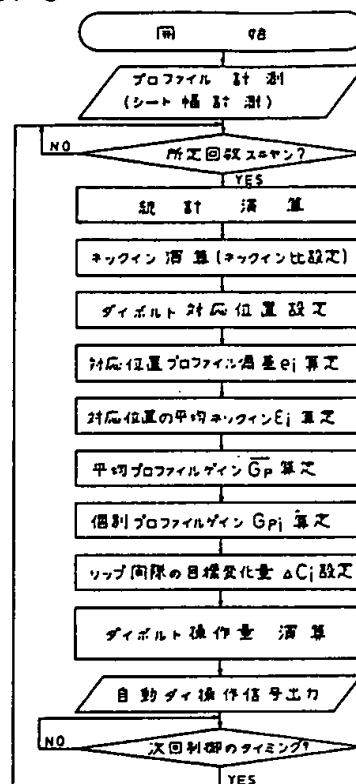 開 始
プロファイル 計 測
(シート 幅 計 測)
NO
所定回数スキャン?
YES
統 計 演 算
ネックイン 演算(ネックイン比設定)
ダイボルト 対応位置設定
対応位置プロファイル偏差ei 算定
対応位置の平均ネックインEi 算定
平均プロファイルゲイン Gp 算定
個別プロファイルゲイン Gpi 算定
リップ間隙の目標変化量 ΔCi 設定
ダイボルト操作量 演算
自動ダイ操作信号出力
NO
次回制御のタイミング?
YES